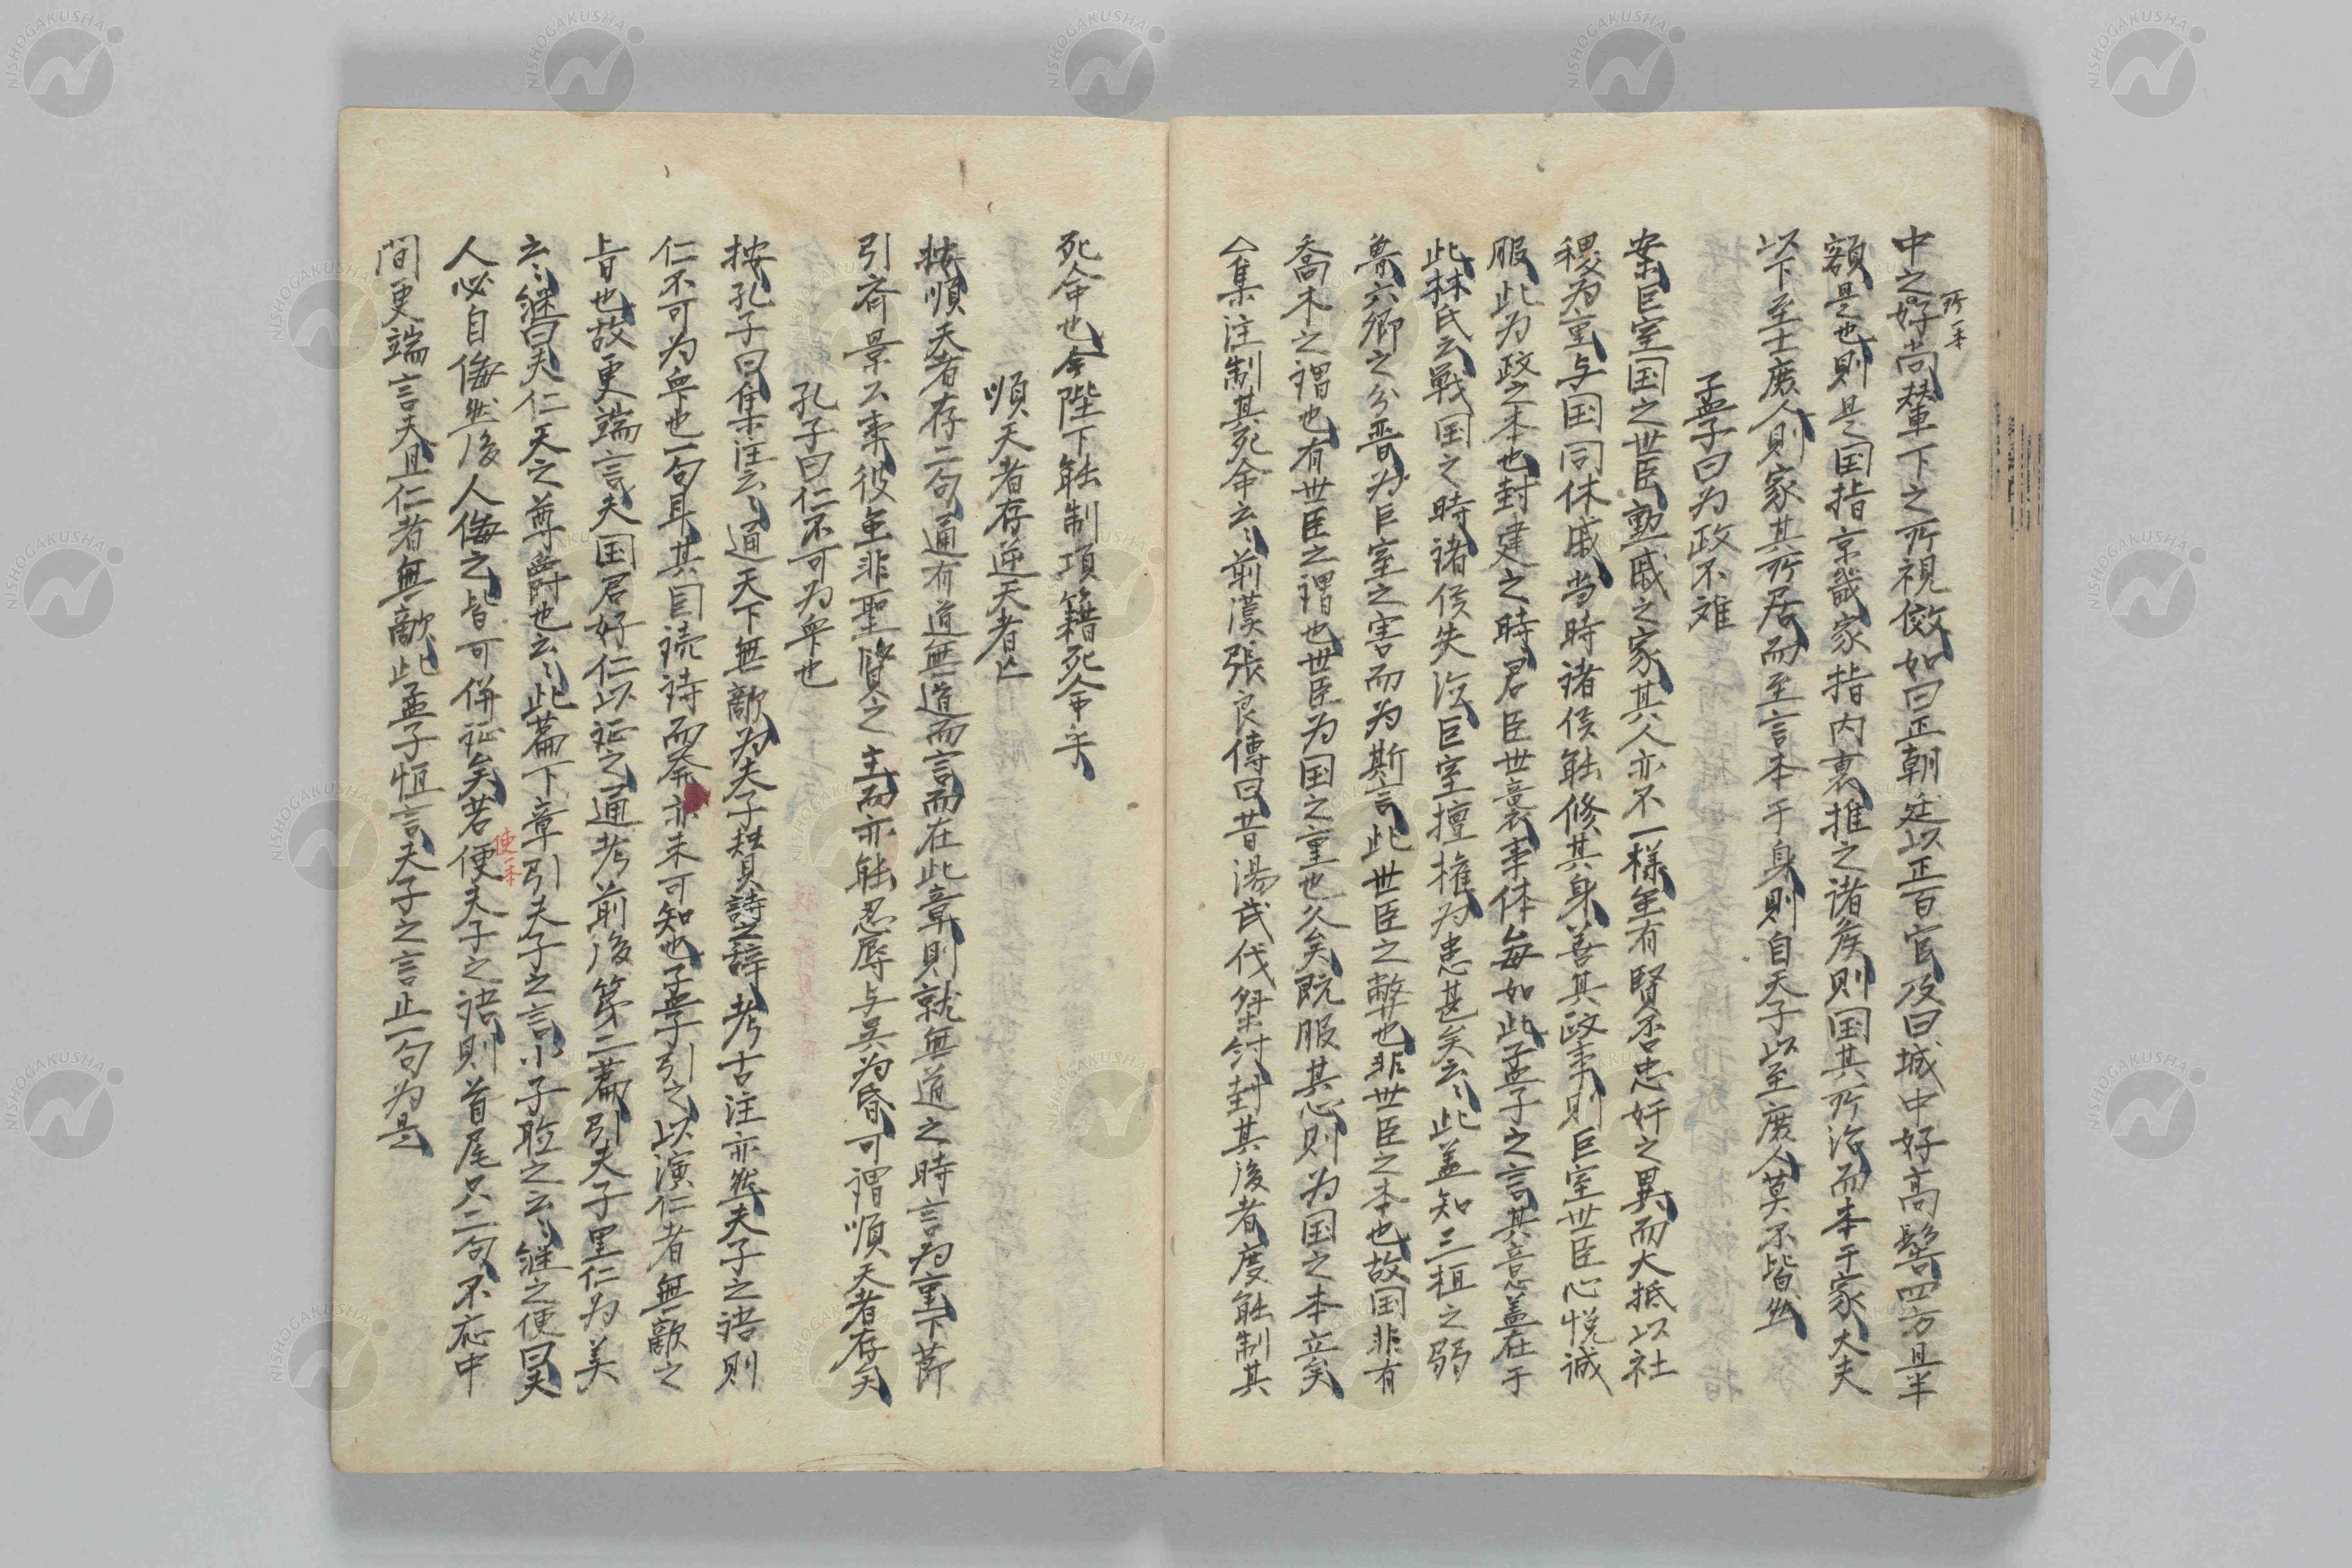 中之好尚輦下之所視傚如曰正朝廷以正百官及曰城中好高髻四方且半
所一本
額是也則是国指京畿家指内裏推之諸侯則国其所治而本于家大夫
以下至士庶人則家其所居而至言本于身則自天子以至庶人莫不皆然
孟子曰为政不难
案巨室国之世臣勳戚之家其人亦不一様虽有賢否忠奸之異而大抵以社
稷为重与国同休戚当時諸侯能修其身善其政事則巨室世臣心悦誠
服此为政之本也封建之時君臣世襲事体每如此孟子之言其意盖在于
此林氏云戦国之時諸侯失治巨室擅権为患甚矣云〻此盖知三桓之弱
魯六卿之分晋为巨室之害而为斯言此世臣之弊也非世臣之本也故国非有
喬木之謂也有世臣之謂也世臣为国之重也久矣既服其心則为国之本立矣
△集注制其死命云〻前漢張良傳曰昔湯武伐桀紂封其後者度能制其
死命也今陛下能制項籍死命乎
順天者存逆天者亡
按順夫者存二句通有道無道而言而在此章則就無道之時言为重下節
引斉景公事彼虽非聖賢之主而亦能忍辱与呉为昏可謂順天者存矣
孔子曰仁不可为衆也
按孔子曰集注云〻通天下無敵为夫子賛詩之辞考古注亦然夫子之語則
仁不可为衆也一句耳其因読詩而発亦未可知也孟子引之以演仁者無敵之
旨也故更端言夫国君好仁以証之通考前後第二篇引夫子里仁为美
云〻継曰夫仁天之尊爵也云〻此篇下章引夫子之言小子聴之云〻継之便曰夫
人必自侮然後人侮之皆可併証矣若便夫子之語則首尾只二句不応中
使一本
間更端言夫且仁者無敵此孟子恒言夫子之言止一句为是